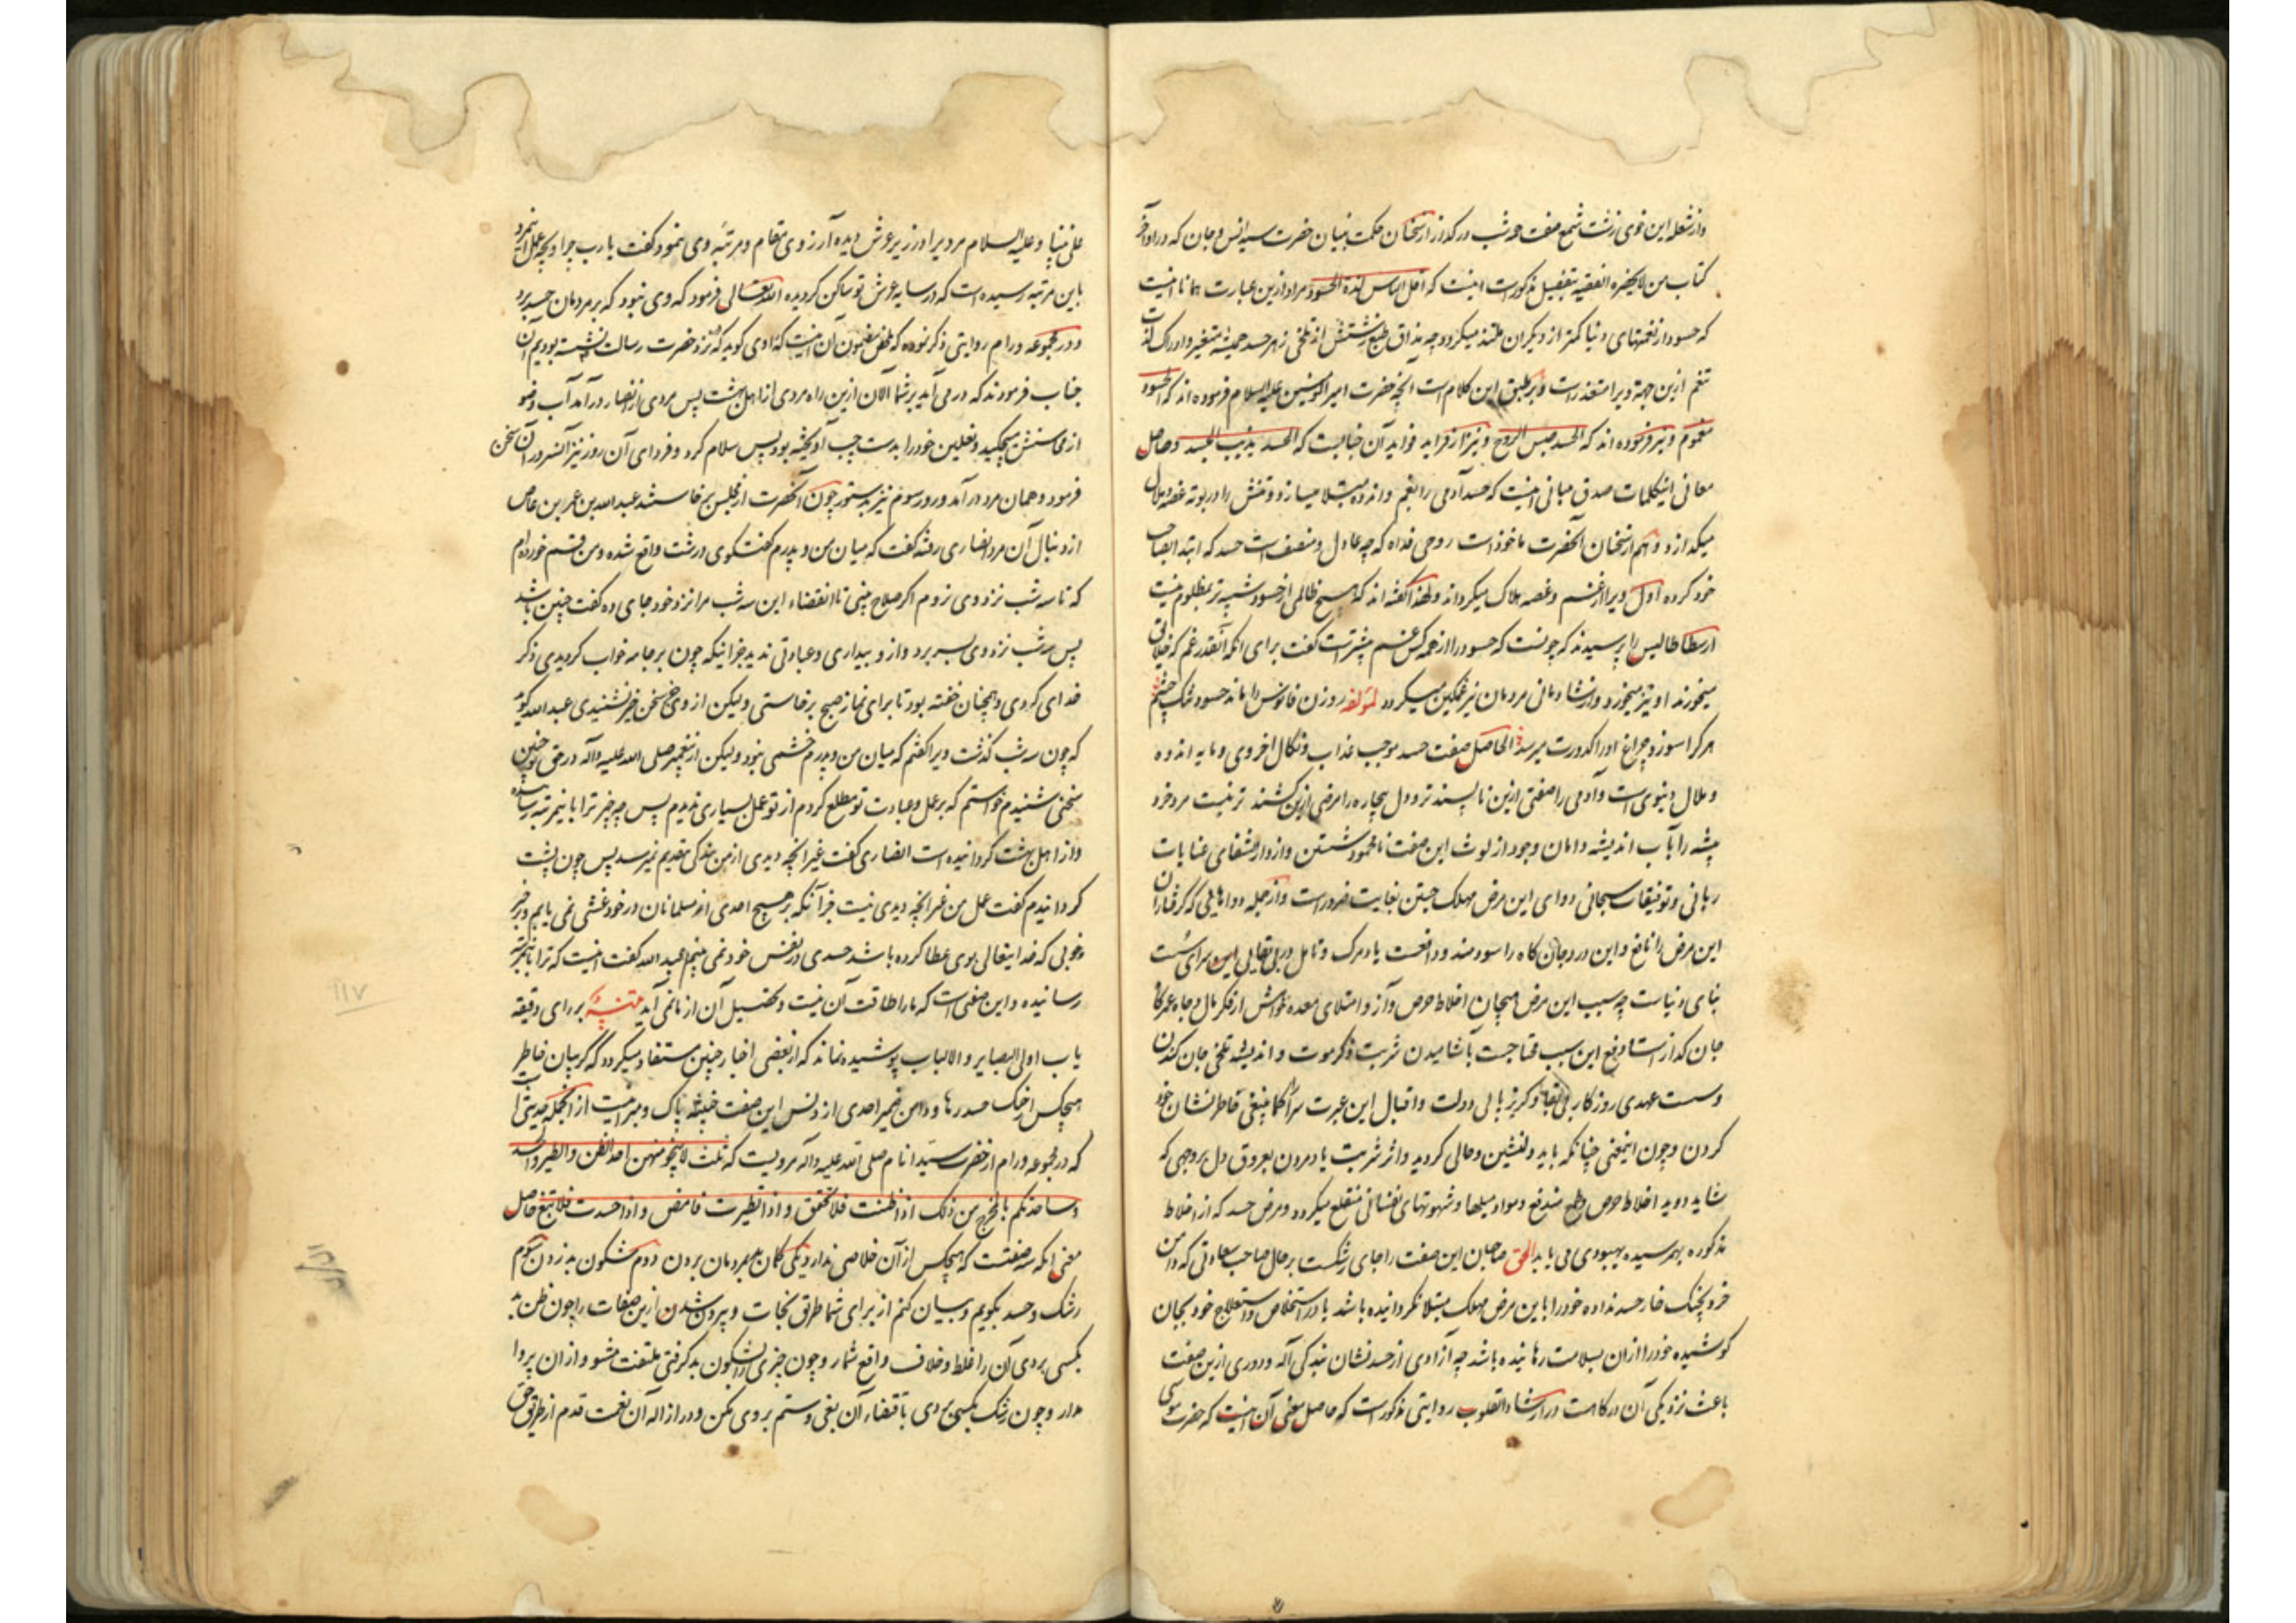 واز شعله این خوی زشت شمع صفت هر شب در گداز از سخنان حکمت بنیان حضرت سید انس و جان که در اواخر
کتاب من لایحضره الفقیه بتفصیل مذکورست اینست که اقل الناس لذة الحسود مراد ازین عبارت همانا اینست
که حسود از نعمتهای دنیا کمتر از دیگران ملتذ میگردد چه مذاق طبع زشتش از تلخی زهر حسد همیشه متغیر و ادراک لذت
تنعم ازین جهة ویرا متعذر است و بر طبق این کلام است آنچه حضرت امیرالمؤمنین علیه السلام فرموده اند که الحسود
مغموم و نیز فرموده اند که الحسد حبس الروح و نیز از فراید فواید آن جنابست که الحسد یذیب الجسد و حاصل
معانی اینکلمات صدق مبانی اینست که حسد آدمی را بغم و اندوه مبتلا میسازد و تنش را در بوته غصه و ملال
میگدازد و هم از سخنان آنحضرت ماخوذ است روحی فداه که چه عادل و منصف است حسد که ابتدا بصاحب
خود کرده اول ویرا از غم و غصه هلاک میگرداند و لهذا گفته اند که هیچ ظالمی از حسود شبیه تر بمظلوم نیست
ارسطاطالیس را پرسیدند که چونست که حسود را از همه کس غم بیشتر است گفت برای آنکه آنقدر غم که خلایق
میخورند او نیز میخورد و از شادمانی مردمان نیز غمگین میگردد لمؤلفه روزن فانوس را ماند حسود تنگ چشم
هر کرا سوزد چراغ او را کدورت میرسد الحاصل صفت حسد موجب عذاب و نکال اخروی و مایه اندوه
و ملال دنیوی است و آدمی را صفتی ازین ناپسندتر و دل بیچاره را مرضی ازین کشنده تر نیست مرد خرد
پیشه را بآب اندیشه دامان وجود از لوث این صفت نامحمود شستن و از دار الشفای عنایات
ربانی و توفیقات سبحانی دوای این مرض مهلک جستن بغایت ضرور است و از جمله دواهایی که گرفتاران
این مرض را نافع و این درد جان کاه را سودمند و دافعست یاد مرگ و تامل در بی بقایی این سرای سست
بنای دنیاست چه سبب این مرض هیجان اخلاط حرص و آز و امتلای معده خواهش از فکر مال و جاه عمر کاه
جان گداز است و دفع این سبب محتاجست بآشامیدن شربت ذکر موت و اندیشه تلخی جان کندن
و سست عهدی روزگار بی بقا و گریزپایی دولت و اقبال این عبرت سرا کما ینبغی خاطرنشان خود
کردن و چون اینمعنی چنانکه باید دلنشین و حالی گردید و اثر شربت یاد مردن بعروق دل بروجهی که
شاید دوید اخلاط حرص و طمع مندفع و مواد میلها و شهوتهای نفسانی منقلع میگردد و مرض حسد که از اخلاط
مذکوره بهم رسیده بهبودی می یابد الحق صاحبان این صفت را جای رشکست بر حال صاحب سعادتی که دامن
خرد بچنگ خار حسد نداده خود را باین مرض مهلک مبتلا نگردانیده باشد یا در استخلاص و استعلاج خود بجان
کوشیده خود را از ان بسلامت رهانیده باشد چه آزادی از حسد نشان بندگی اله و دوری ازین صفت
باعث نزدیکی آن درگاهست در ارشاد القلوب روایتی مذکور است که حاصل معنی آن اینست که حضرت موسی
علی نبینا و علیه السلام مردیرا در زیر عرش دیده آرزوی مقام و مرتبه وی نمود و گفت یا رب چرا و بچه عمل اینمرد
باین مرتبه رسیده است که در سایه عرش تو ساکن گردیده الله تعالی فرمود که وی نبود که بر مردمان حسد برد
و در مجموعه ورام روایتی ذکر نموده که ملخص مضمون آن اینست که راوی گوید که نزد حضرت رسالت نشسته بودیم آن
جناب فرمودند که در می آید بر شما الآن ازین راه مردی از اهل بهشت پس مردی از انصار درآمد آب وضو
از محاسنش میچکید و نعلین خود را بدست چپ آویخته بود پس سلام کرد و فردای آن روز نیز آنسرور آن سخن
فرمود و همان مرد درآمد و روز سوم نیز بدستور چون آنحضرت از مجلس برخاستند عبدالله بن عمرو بن عاص
از دنبال آن مرد انصاری رفته گفت که میان من و پدرم گفتگوی درشت واقع شده و من قسم خورده ام
که تا سه شب نزد وی نروم اگر صلاح بینی تا انقضاء این سه شب مرا نزد خود جای ده گفت چنین باشد
پس سه شب نزد وی بسر برد و از و بیداری و عبادتی ندید جز اینکه چون بر جامه خواب گردیدی ذکر
خدای کردی و همچنان خفته بود تا برای نماز صبح برخاستی ولیکن از وی جز سخن خیر نشنیدی عبدالله گوید
که چون سه شب گذشت ویرا گفتم که میان من و پدرم خشمی نبود ولیکن از پیغمبر صلی الله علیه و آله در حق تو چنین
سخنی شنیدم خواستم که بر عمل و عبادت تو مطلع گردم از تو عمل بسیاری ندیدم پس چه چیز ترا باینمرتبه رسانیده
و از اهل بهشت گردانیده است انصاری گفت غیر آنچه دیدی از من بندگی بتقدیم نمیرسد پس چون پشت
گردانیدم گفت عمل من غیر آنچه دیدی نیست جز آنکه بر هیچ احدی از مسلمانان در خود غشی نمی یابم و بر خیر
و خوبی که خدایتعالی بوی عطا کرده باشد حسدی در نفس خود نمی بینم عبدالله گفت اینست که ترا باینمرتبه
رسانیده و این صفتی است که ما را طاقت آن نیست و تحصیل آن از ما نمی آید تتنبیه بر رای دقیقه
یاب اولی البصایر و الالباب پوشیده نماند که از بعضی اخبار چنین مستفاد میگردد که گریبان خاطر
هیچکس از چنگ حسد رها و دامن ضمیر احدی از دنس این صفت خبیثه پاک و مبرا نیست از آنجمله حدیثی است
که در مجموعه ورام از حضرت سید انام صلی الله علیه و آله مرویست که ثلث لا ینجو منهن احد الظن و الطیرة و الحسد
و ساحدثکم بالمخرج من ذلک اذا ظننت فلا تحقق و اذا تطیرت فامض و اذا حسدت فلا تبغ حاصل
معنی آنکه سه صفتست که هیچکس از آن خلاصی ندارد یکی گمان بد بمردمان بردن دوم شگون بد زدن سوم
رشک و حسد بگویم و بیان کنم از برای شما طریق نجات و بیرون شدن ازین صفات را چون ظن بد
بکسی بردی آن را غلط و خلاف واقع شمار و چون چیزی را شگون بد گرفتی ملتفت مشو و از ان پروا
مدار و چون رشک بکسی بردی باقتضاء آن بغی و ستم بر وی مکن و در ازاله آن نعمت قدم از طریق حق
١١٧